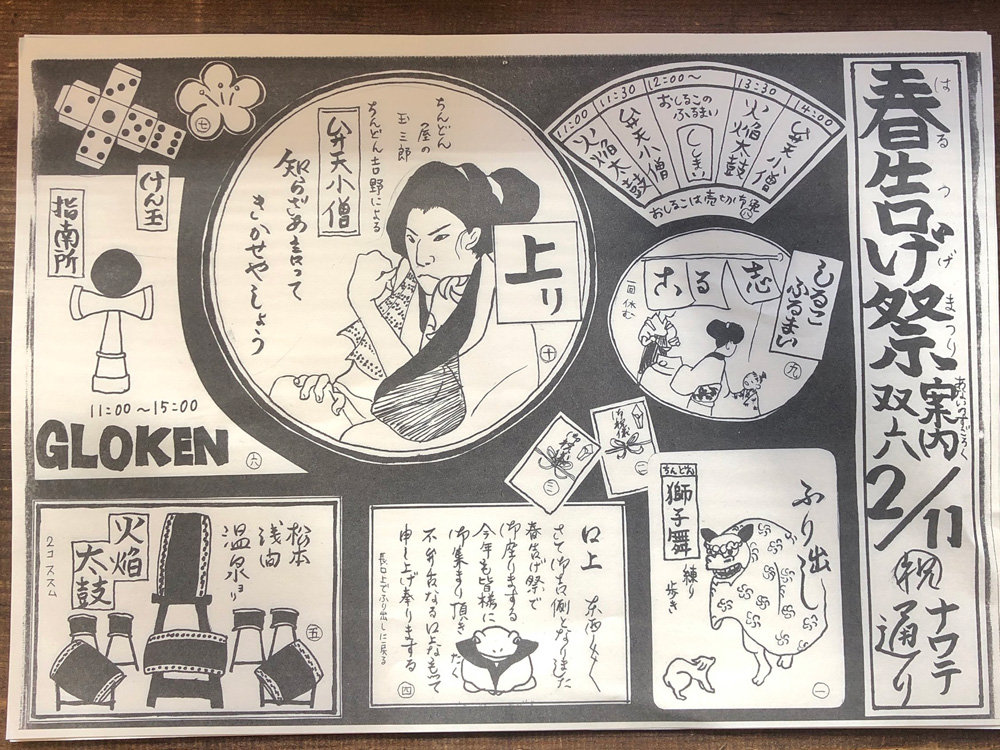 春告げ祭
はるつげまつり
案内双六
あんないすごろく
2/11
祝
ナワテ通り
11:00
火焔太鼓
11:30
弁天小僧
12:00～
おしるこの
ふるまい
ししまい
13:30
火焔太鼓
14:00
弁天小僧
しるこ
ふるまい
志るこ
一回休む
九
ちんどん
屋の
玉三郎
ちんどん吉野による
弁天小僧
知らざあ言って
きかせやしょう
上り
十
七
けん玉
指南所
11:00～15:00
GLOKEN
六
ふり出し
ちんどん
獅子舞
練り
歩き
一
二
三
口上
さて御吉例となりました
春告げ祭で
御座りまする
今年も皆様に
御集まり頂きたく
不弁舌なる口上なもって
申し上げ奉りまする
長口上でふり出しに戻る
四
松本
浅間
温泉ヨリ
火焔
太鼓
2コススム
五